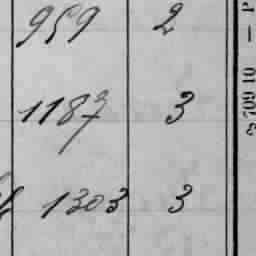 959 2
1187 3
1303 3